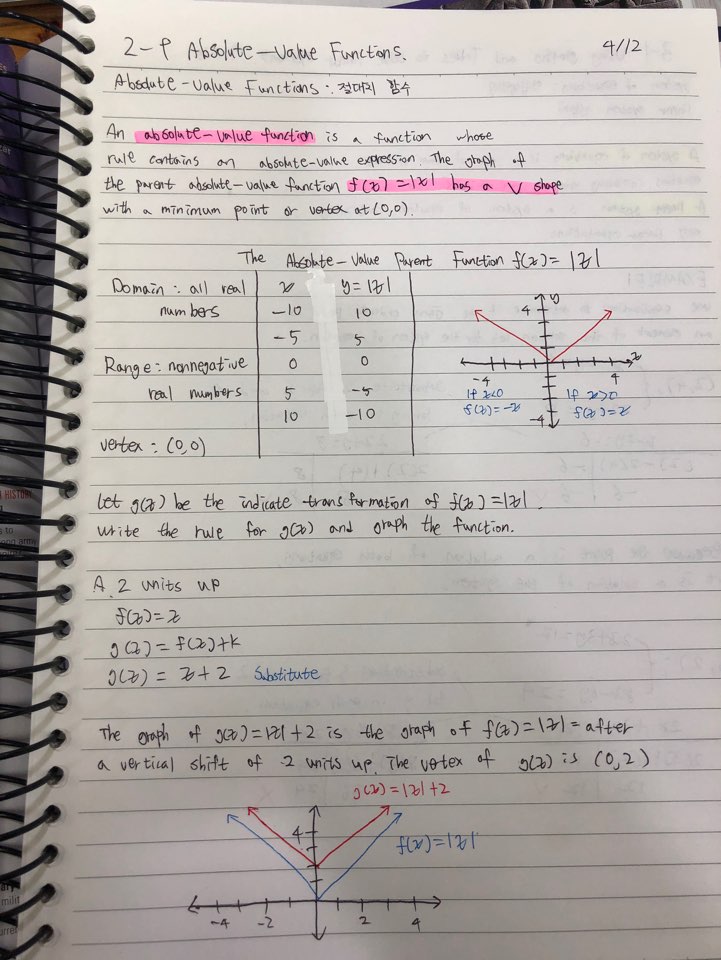 2-9 Absolute-Value Functions. 4/12
Absolute-Value Functions: 절대치 함수
An absolute-value function is a function whose
rule contains an absolute-value expression. The graph of
the parent absolute-value function f(x)=|x| has a V shape
with a minimum point or vertex at (0,0).
The Absolute-Value Parent Function f(x)=|x|
Domain: all real
numbers
Range: nonnegative
real numbers
vertex: (0,0)
x y=|x|
-10 10
-5 5
0 0
5 -5
10 -10
4 y
x
-4 4
-4
If x<0
f(x)=-x
If x>0
f(x)=x
Let g(x) be the indicate transformation of f(x)=|x|.
write the rule for g(x) and graph the function.
A. 2 units up
f(x)=x
g(x)=f(x)+k
g(x)=x+2 Substitute
The graph of g(x)=|x|+2 is the graph of f(x)=|x|=after
a vertical shift of 2 units up. The votex of g(x) is (0,2)
g(x)=|x|+2
4
f(x)=|x|
-4 -2 2 4